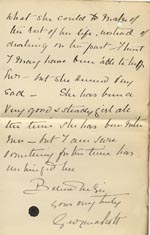 what she could to make
the rest of his life, instead of
dwelling on his past – I hint
I may have been able to help
her – but she seemed very
sad – She has been a
very good & steady girl all
the time she has been under
me – but I am sure
something for the time has
unhinged her
Believe me Sir
yours very truly